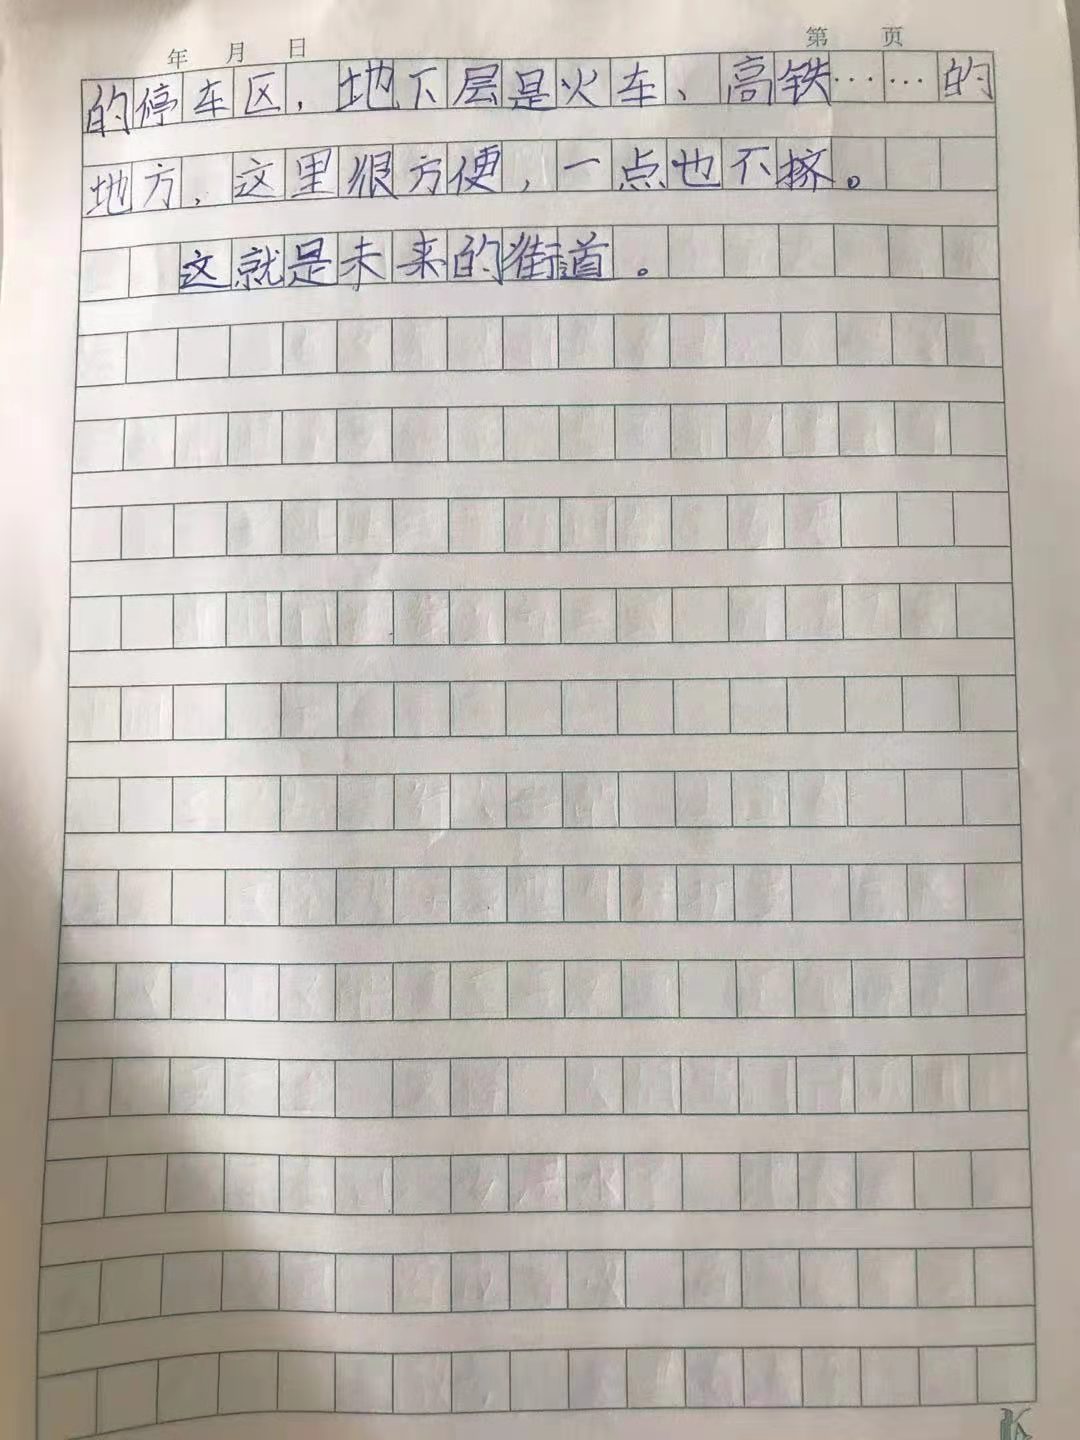 年 月 日 第 页
的停车区,地下层是火车、高铁……的
地方,这里很方便,一点也不挤。
这就是未来的街道。